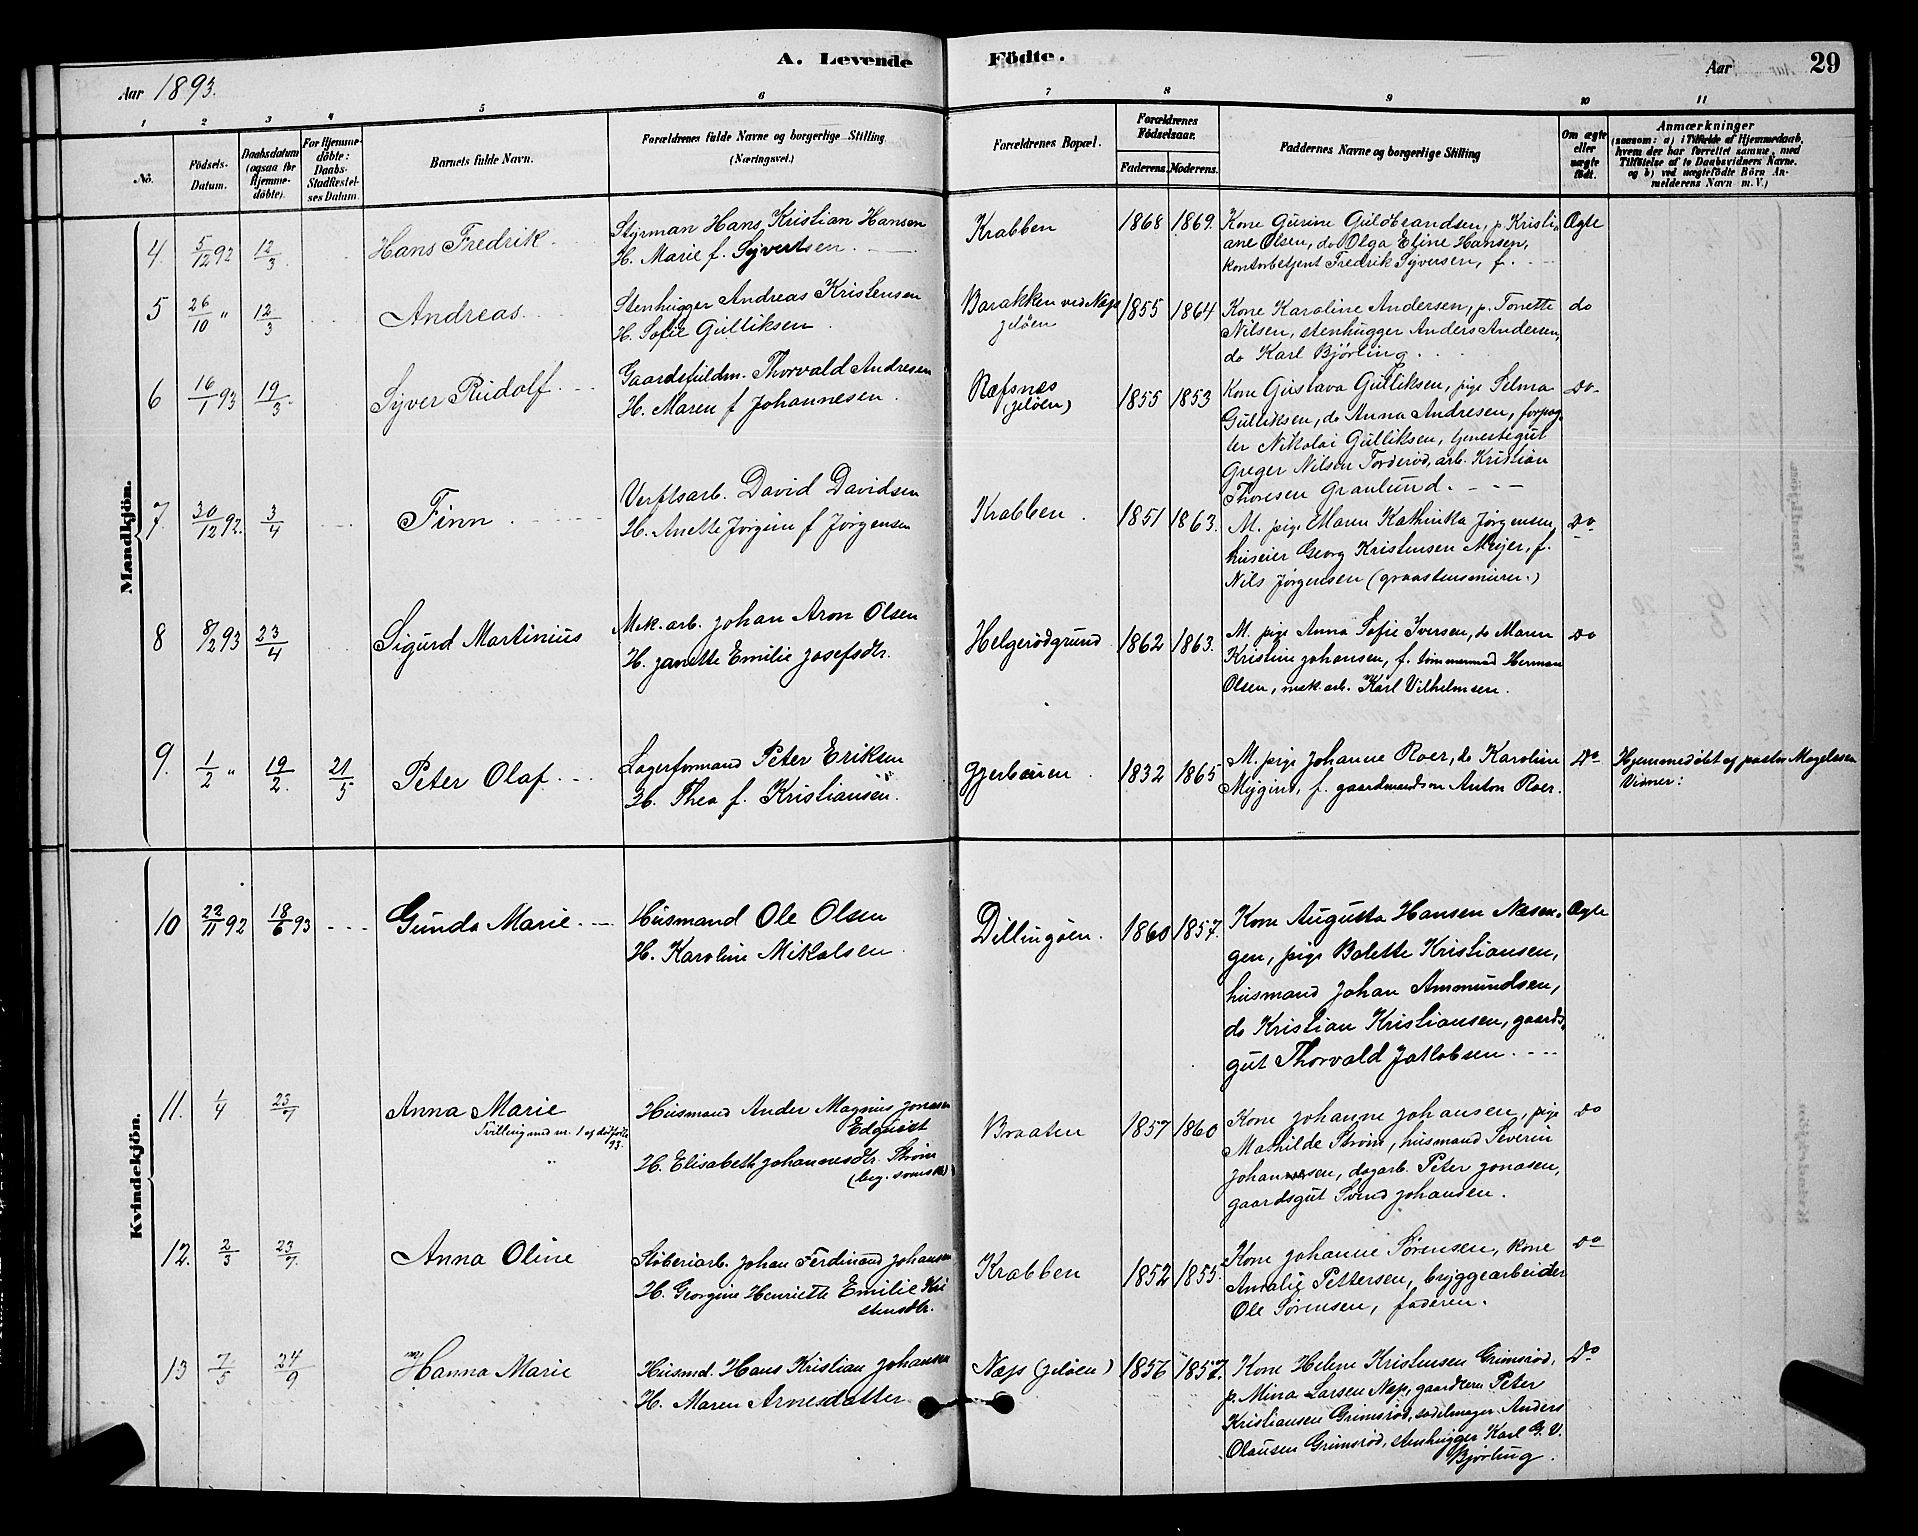 A. Levende Födte.
Aar 1893.
Aar
29
1 2 3 4 5 6 7 8 9 10 11
No.
Födsels-
Datum.
Daabsdatum
(ogsaa for
Hjemme-
döbte).
For Hjemme-
döbte:
Daabs-
Stadfæstel-
ses Datum.
Barnets fulde Navn.
Forældrenes fulde Navne og borgerlige Stilling
(Næringsvei.)
Forældrenes Bopæl.
Forældrenes
Födselsaar.
Faderens. Moderens.
Faddernes Navne og borgerlige Stilling
Om ægte
eller
uægte
födt.
Anmærkninger
(saasom: a) i Tilfælde af Hjemmedaab,
hvem der har forrettet samme, med
Tilföielse af to Daabsvidners Navne.
og b) ved uægtefödte Börn An-
melderens Navn m. V.)
Mandkjön.
4. 5/12 92 12/3 Hans Fredrik
Styrman Hans Kristian Hansen
H. Marie f. Syvertsen
Krabben 1868 1869.
Kone Gurine Guldbrandsen, p. Kristi-
ane Olsen, do Olga Eline Hansen,
kontorbetjent Fredrik Syversen, f.
Ægte
5 26/10 " 12/3 Andreas
Stenhugger Andreas Kristensen
H. Sofie Gulliksen
Barakken ved Næs
Jeløen
1855 1864
Kone Karoline Andersen, p. Tonette
Nilsen, stenhugger Anders Andersen,
do Karl Bjørling.
do
6 16/1 93 19/3 Syver Rudolf
Gaardsfuldm. Thorvald Andresen
H. Maren f Johannesen.
Ræfsnes
(Jeløen)
1855 1853
Kone Gustava Gulliksen, pige Selma
Gulliksen, do Anna Andresen, forpag-
ter Nikolai Gulliksen, tjenestegut
Greger Nilsen Torderød, arb. Kristian
Thoresen Granlund.
Do
7. 30/12 92. 3/4 Finn
Verftsarb. David Davidsen
H. Anette Jørgine f Jørgensen
Krabben. 1851 1863.
M. pige Maren Kathinka Jørgensen,
huseier Georg Kristensen Meyer, f.
Nils Jørgensen (graastensmurer.)
Do
8 8/2 93 23/4 Sigurd Martinius
Mek. arb. Johan Aron Olsen
H. Janette Emilie Josefsdtr.
Helgerødgrund 1862 1863.
M. pige Anna Sofie Iversen, do Maren
Kristine Johansen, f. tømmermand Herman
Olsen, mek. arb. Karl Vilhelmsen.
Do
9. 1/2 " 19/2. 21/5 Peter Olaf
Lagerformand Peter Eriksen
H. Thea f. Kristiansen.
1832 1865
M. pige Johanne Roer, do Karoline
f. gaardmandssøn Anton Roer.
Do
Hjemmedøbt af pastor Magelssen
Vidner:
Kvindekjön.
10 22/11 92 18/6 93 Gunda Marie
Husmand Ole Olsen
H. Karoline Mikalsen
Dillingøen. 1860 1857.
Kone Augusta Hansen Næsen-
gen, pige Bolette Kristiansen,
husmand Johan Ammundsen,
do Kristian Kristiansen, gaards-
gut Thorvald Jakobsen.
Ægte
11. 1/4 23/7 Anna Marie
Tvilling med nr. 1 af dødfødte
93.
Husmand Ander Magnus Jonasen
Edquist
H. Elisabeth Johannesdtr. Strøm
(beg. svenske)
Braaten 1857 1860
Kone Johanne Johansen, pige
Mathilde Strøm, husmand Severin
Johannesen, dagarb. Peter Jonasen,
gaardsgut Svend Johansen.
Do
12. 2/3 23/7. Anna Oline
Støberiarb. Johan Ferdinand Johansen
H. Georgine Henriette Emilie Kri
stensdtr.
Krabben 1852 1855.
Kone Johanne Sørensen, kone
Amalie Pettersen, bryggearbeider
Ole Sørensen, faderen.
Do
13 7/5 24/9 Hanna Marie
Husmd. Hans Kristian Johansen
H. Maren Arnesdatter
Næs (Jeløen) 1856 1857.
Kone Helene Kristensen Grimsrød,
p. Mina Larsen Næs, Peter
Kristiansen Grimsrød, sadelmager Anders
Olausen Grimsrød, stenhugger Karl G. V.
Bjørling.
Do